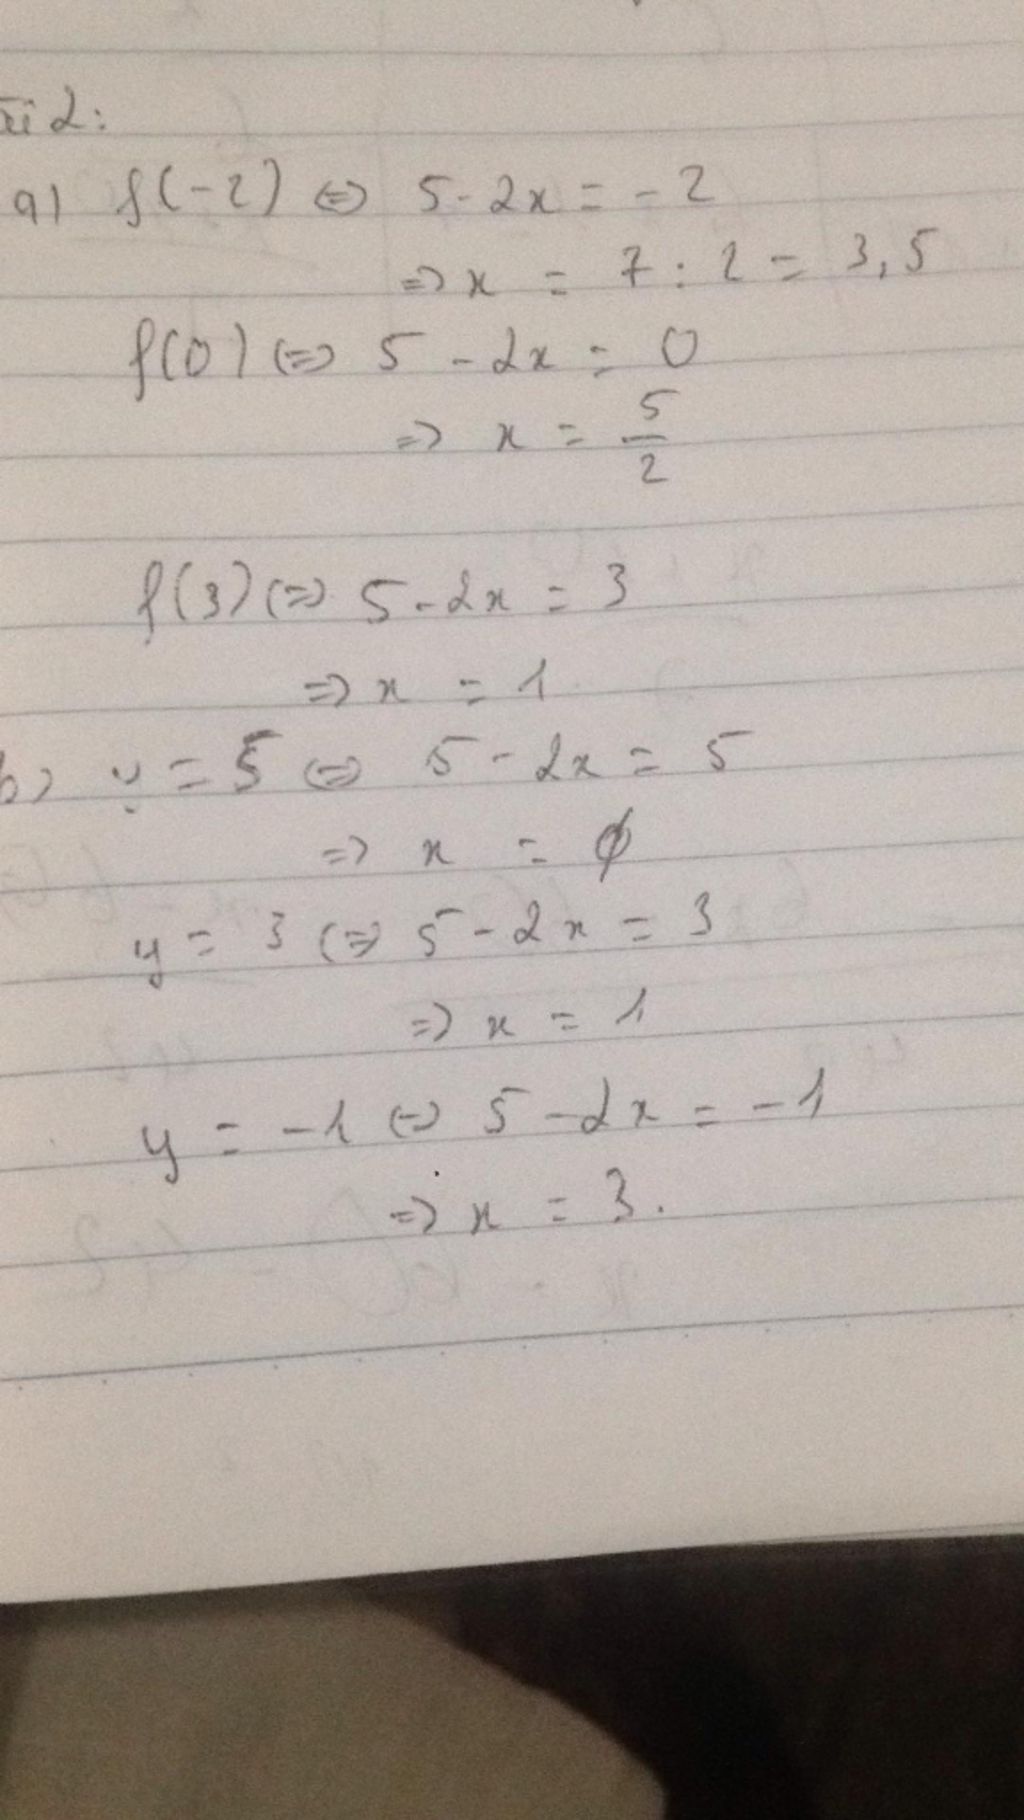 ài 2:
a) f(-2) ⇔ 5 - 2x = - 2
⇒ x = 7 : 2 = 3,5
f(0) ⇔ 5 - 2x = 0
⇒ x = 5/2
f(3) ⇔ 5 - 2x = 3
⇒ x = 1
b) y = 5 ⇔ 5 - 2x = 5
⇒ x = ∅
y = 3 ⇔ 5 - 2x = 3
⇒ x = 1
y = -1 ⇔ 5 - 2x = -1
⇒ x = 3.